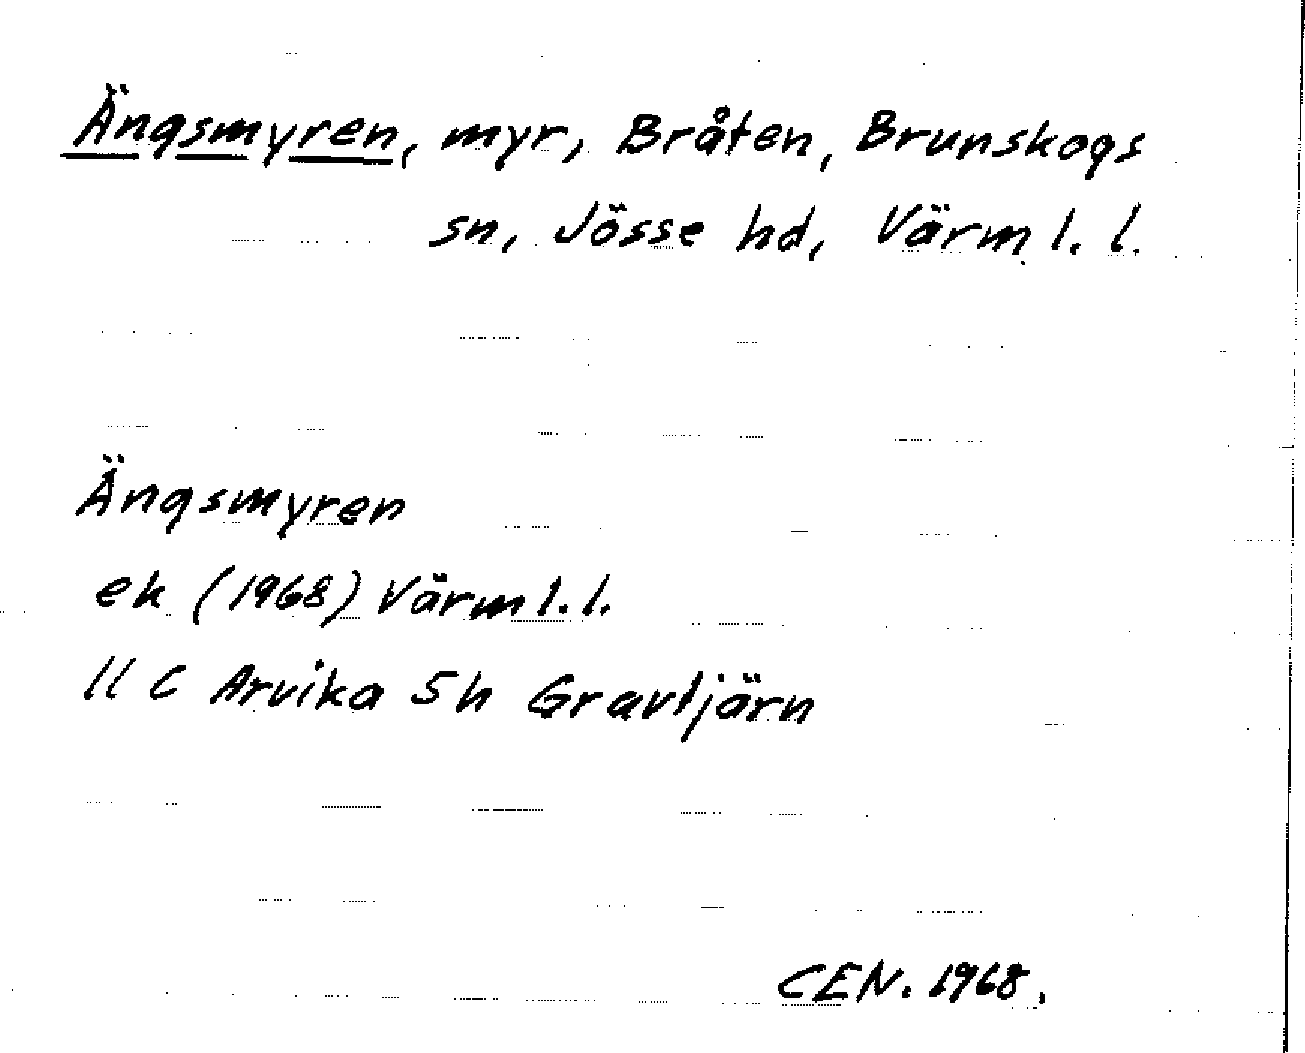 Ängsmyren, myr, Bråten, Brunskogs
sn, Jösse hd, Värml. l.
Ängsmyren
ek (1968) Värml. l.
11 C Arvika 5h Gravtjärn
CEN. 1968.